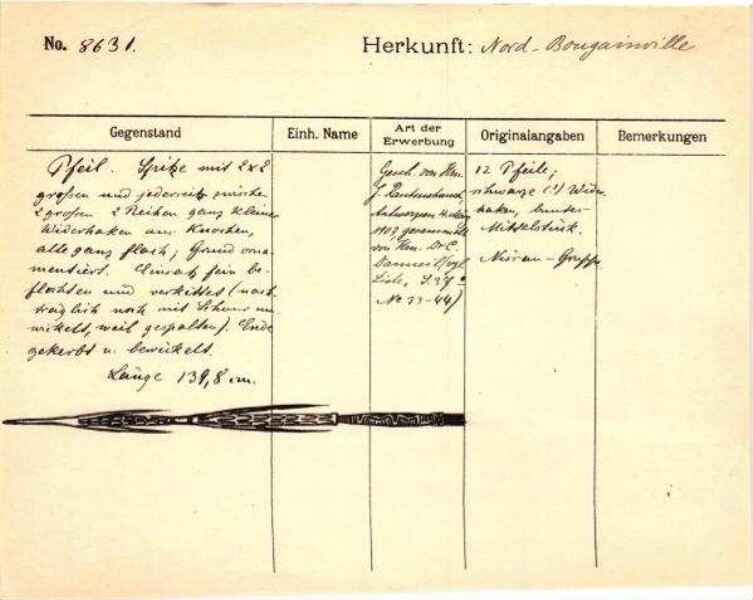 No. 8631.
Herkunft: Nord-Bougainville
Gegenstand
Einh. Name
Art der Erwerbung
Originalangaben
Bemerkungen
Pfeil. Spitze mit 2x2
großen und jederseits zwischen
2 großen 2 Reihen ganz kleine
Widerhaken aus Knochen,
alle ganz flach; Grund orna-
mentiert. Einsatz fein be-
flochten und verkittet (nach-
träglich noch mit Schnur um-
wickelt, weil gespalten). Ende
gekerbt u. bewickelt.
Länge 139,8 cm.
Gesch. von Hrn.
J.
Antwerpen
1903 gesammelt
von Hrn. Dr C.
(vgl.
Liste, S. 37
No 33-44)
12 Pfeile;
schwarze (!) Wider-
haken, bunter
Mittelstück.
Gruppe